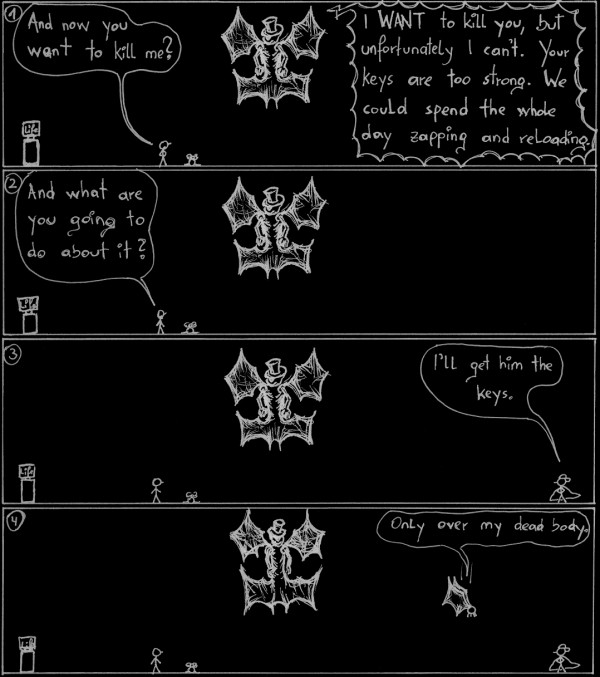 1
And now you
want to kill me?
I WANT to kill you, but
unfortunately I can't. Your
keys are too strong. We
could spend the whole
day zapping and reloading.
Life
2
And what are
you going to
do about it?
Life
3
I'll get him the
keys.
Life
4
Only over my dead body.
Life